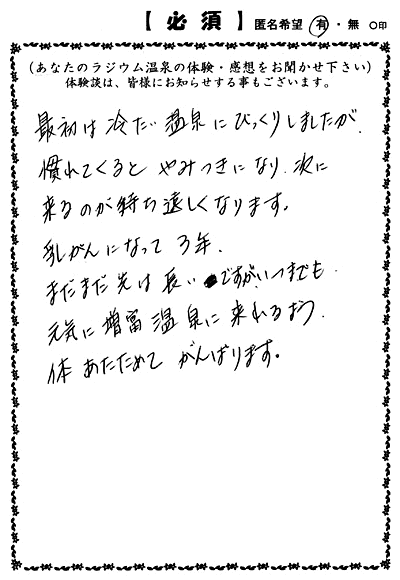 【必須】 匿名希望 有・無 ○印
(あなたのラジウム温泉の体験・感想をお聞かせ下さい)
体験談は、皆様にお知らせする事もございます。
最初は冷たい温泉にびっくりしましたが、
慣れてくると やみつきになり、次に
来るのが待ち遠しくなります。
乳がんになって 3年、
まだまだ先は長いですが、いつまでも
元気に増富温泉に来れるよう、
体 あたためて がんばります。